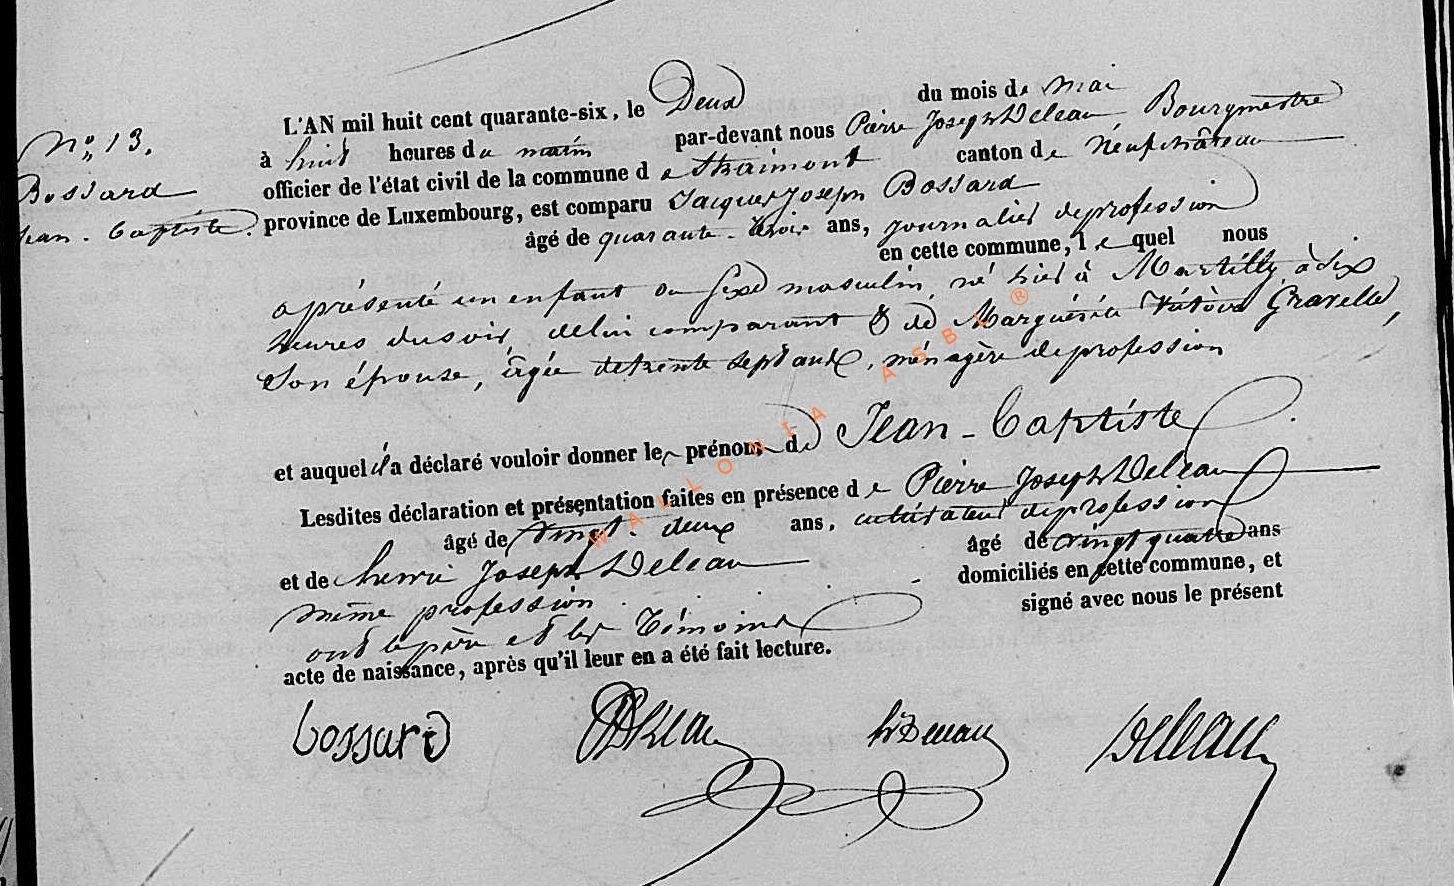 N° 13.
Bossard
Jean-Baptiste.
L'AN mil huit cent quarante-six, le Deux du mois de mai
à huit heures du matin par-devant nous Pierre Joseph Deleau Bourgmestre
officier de l'état civil de la commune d e Straimont canton de Neufchâteau
province de Luxembourg, est comparu Jacques Joseph Bossard
âgé de quarante-trois ans, journalier de profession
en cette commune, l e quel nous
a présenté un enfant du sexe masculin, né hier à Martilly à six
heures du soir, de lui comparant & de Marguérite Victoire Gravelle,
son épouse, âgée de trente sept ans, ménagère de profession
et auquel il a déclaré vouloir donner le prénom de Jean-Baptiste.
Lesdites déclaration et présentation faites en présence d e Pierre Joseph Deleau
âgé de vingt-deux ans, cultivateur de profession
et de henri Joseph Deleau âgé de vingt quatre ans
même profession. domiciliés en cette commune, et
ont le père et les témoins signé avec nous le présent
acte de naissance, après qu'il leur en a été fait lecture.
bossard Deleau Deleau
WALLONIA ASBL ®